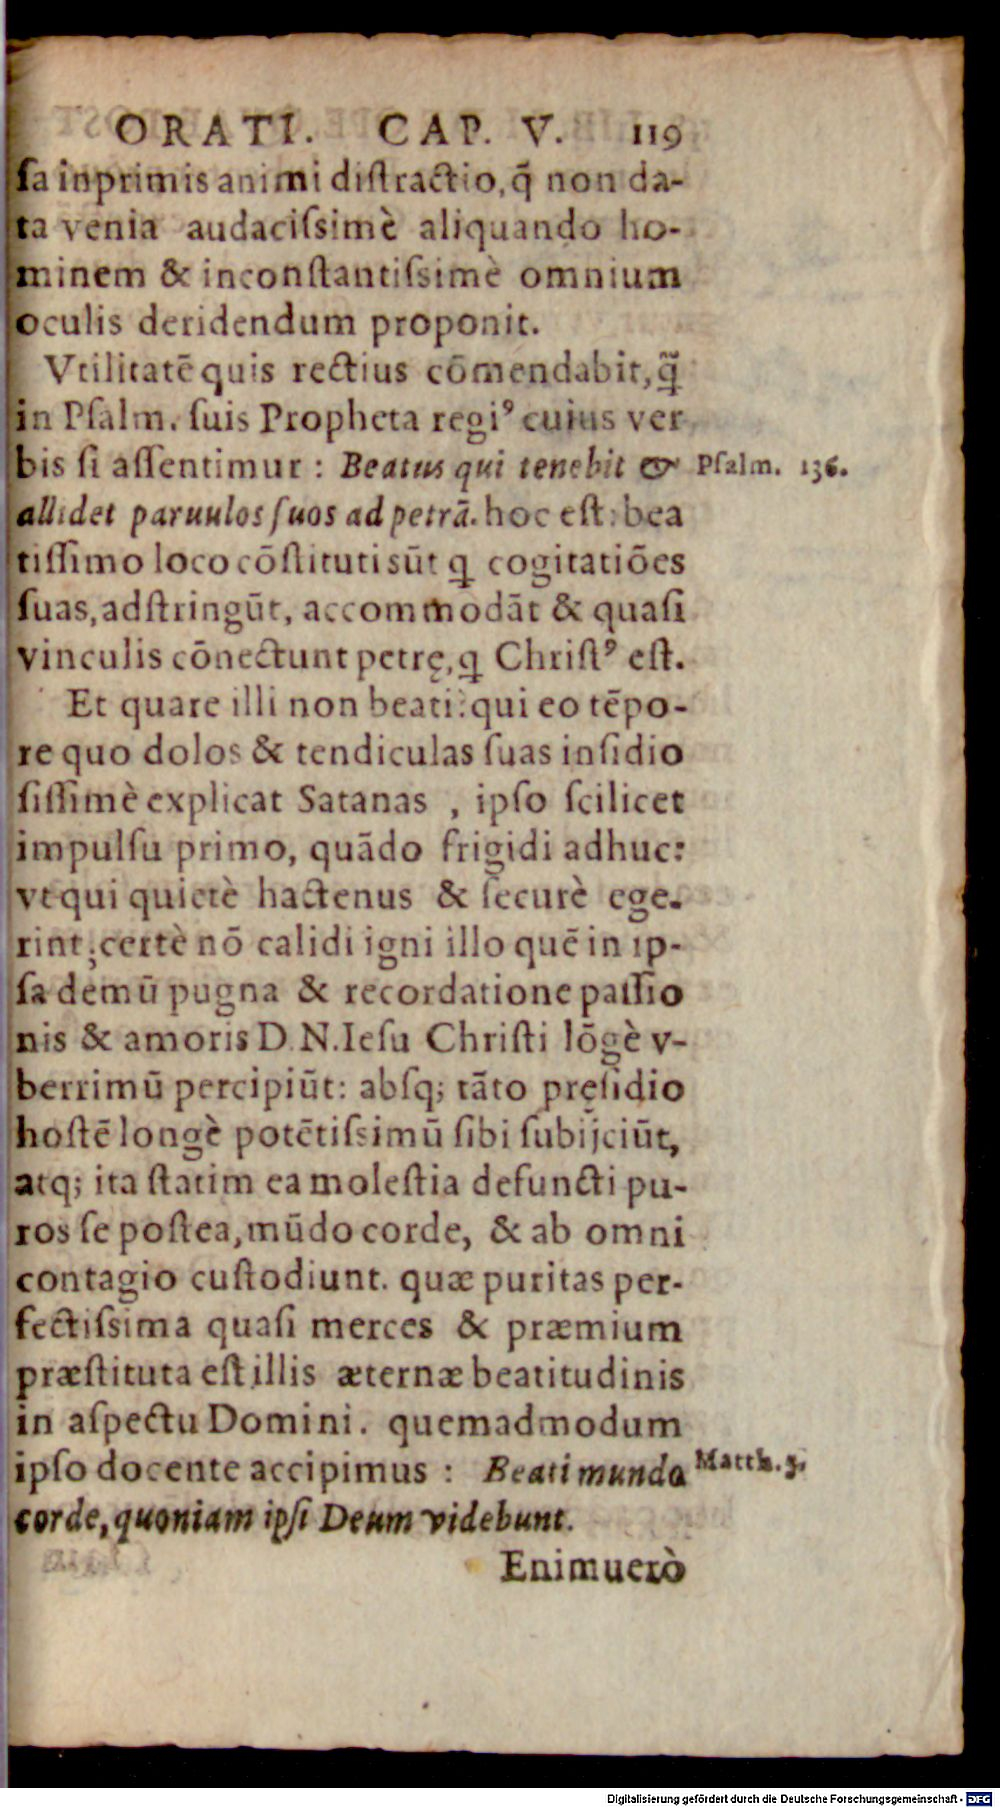 ORATI. CAP. V. 119
ſa inprimis animi diſtractio, q̃ non da-
ta venia audaciſsimè aliquando ho-
minem & inconſtantiſsimè omnium
oculis deridendum proponit.
Vtilitatē quis rectius cōmendabit, ꝗ̃
in Pſalm. ſuis Propheta regiꝰ cuius ver
bis ſi aſſentimur : Beatus qui tenebit & Pſalm. 136.
allidet paruulos ſuos ad petrā. hoc eſt: bea
tiſſimo loco cōſtituti sūt ꝗ cogitatiōes
ſuas, adſtringūt, accommodāt & quaſi
vinculis cōnectunt petrę, ꝗ Chriſtꝰ eſt.
Et quare illi non beati: qui eo tēpo-
re quo dolos & tendiculas ſuas inſidio
ſiſſimè explicat Satanas , ipſo ſcilicet
impulſu primo, quādo frigidi adhuc:
vt qui quietè hactenus & ſecurè ege-
rint; certè nō calidi igni illo quē in ip-
ſa demū pugna & recordatione paſſio
nis & amoris D. N. Ieſu Chriſti lōgè v-
berrimū percipiūt: abſq; tāto pręſidio
hoſtē longè potētiſsimū ſibi ſubijciūt,
atq; ita ſtatim ea moleſtia defuncti pu-
ros ſe poſtea, mūdo corde, & ab omni
contagio cuſtodiunt. quæ puritas per-
fectiſsima quaſi merces & præmium
præſtituta eſt illis æternæ beatitudinis
in aſpectu Domini. quemadmodum
ipſo docente accipimus : Beati mundo Matth. 5.
corde, quoniam ipſi Deum videbunt.
Enimuerò
Digitalisierung gefördert durch die Deutsche Forschungsgemeinschaft - DFG